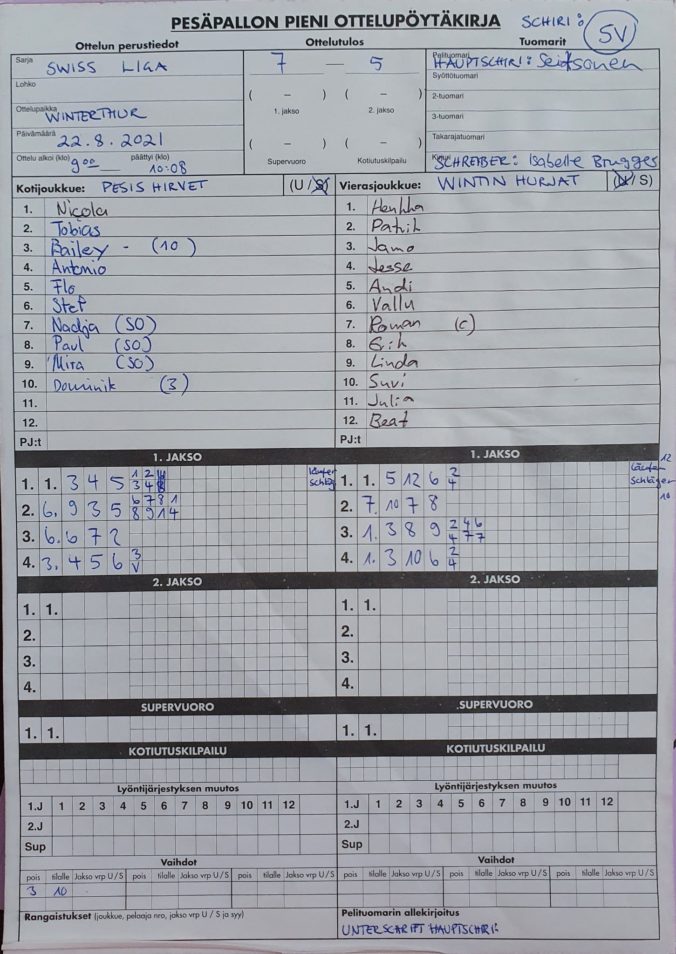 PESÄPALLON PIENI OTTELUPÖYTÄKIRJA SCHIRI: SV
Ottelun perustiedot Ottelutulos Tuomarit
Sarja SWISS LIGA 7 — 5 Pelituomari HAUPTSCHIRI: Seitsonen
Lohko Syöttötuomari
( – ) ( – ) 2-tuomari
Ottelupaikka WINTERTHUR 1. jakso 2. jakso 3-tuomari
Päivämäärä 22.8.2021 ( – ) ( – ) Takarajatuomari
Ottelu alkoi (klo) 9 00 päättyi (klo) 10:08 Supervuoro Kotiutuskilpailu Kirjuri SCHREIBER: Isabelle Brugger
Kotijoukkue: PESIS HIRVET (U / S)
1. Nicola
2. Tobias
3. Bailey - (10)
4. Antonio
5. Flo
6. Stef
7. Nadja (SO)
8. Paul (SO)
9. Mira (SO)
10. Dominik (3)
11.
12.
PJ:t
Vierasjoukkue: WINTIN HURJAT (U / S)
1. Henkka
2. Patrik
3. Jamo
4. Jesse
5. Andi
6. Vallu
7. Roman (c)
8. Erik
9. Linda
10. Suvi
11. Julia
12. Beat
PJ:t
1. JAKSO
läufer
schläg
1. 1. 3 4 5 1 2
3 4
2. 6. 9 3 5 6 7 8 1
8 9 1 4
3. 6. 6 7 2
4. 3. 4 5 6 3
V
1. JAKSO
läufer 12
schläger 10
1. 1. 5 12 6 2
4
2. 7. 10 7 8
3. 1. 3 8 9 2 4 6
4 7 7
4. 1. 3 10 6 2
4
2. JAKSO 2. JAKSO
1. 1. 1. 1.
2. 2.
3. 3.
4. 4.
SUPERVUORO SUPERVUORO
1. 1. 1. 1.
KOTIUTUSKILPAILU KOTIUTUSKILPAILU
Lyöntijärjestyksen muutos Lyöntijärjestyksen muutos
1.J 1 2 3 4 5 6 7 8 9 10 11 12 1.J 1 2 3 4 5 6 7 8 9 10 11 12
2.J 2.J
Sup Sup
Vaihdot Vaihdot
pois tilalle Jakso vrp U / S pois tilalle Jakso vrp U / S pois tilalle Jakso vrp U / S pois tilalle Jakso vrp U / S pois tilalle Jakso vrp U / S pois tilalle Jakso vrp U / S
3 10
Rangaistukset (joukkue, pelaaja nro, jakso vrp U / S ja syy) Pelituomarin allekirjoitus
UNTERSCHRIFT HAUPTSCHRI: